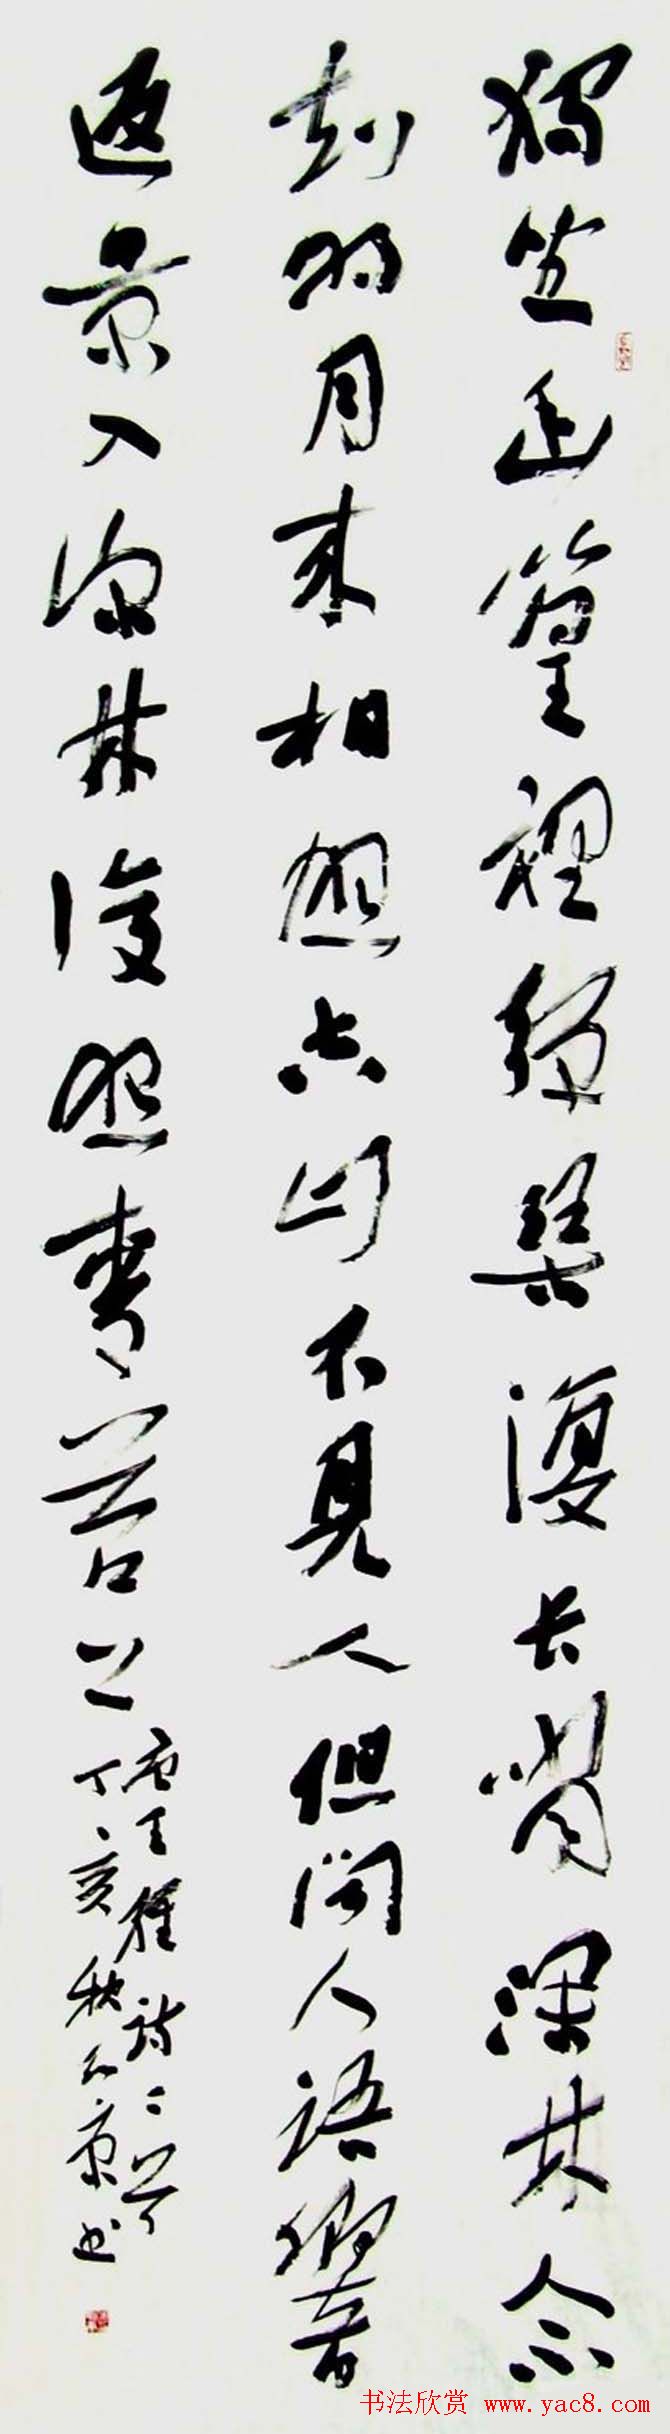 獨坐幽篁裡彈琴復长嘯深林人不
知明月来相照空山不見人但聞人語響
返景入深林復照青苔上
唐王維詩二首
丁亥秋於京书
书法欣赏 www.yac8.com